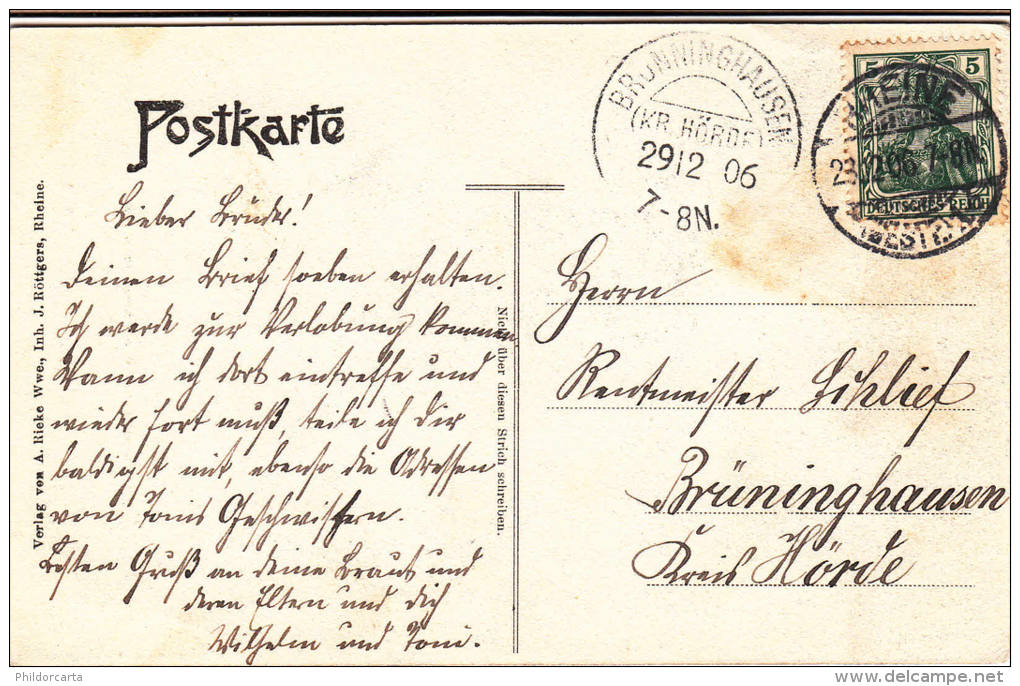 Postkarte
Lieber Bruder!
Deinen Brief soeben erhalten.
Ich werde zur Verlobung kommen.
Wann ich dort eintreffe und
wieder fort muß, teile ich Dir
baldigst mit, ebenso die Adressen
von Tonis Geschwistern.
Besten Gruß an deine Braut und
deren Eltern und dich
Wilhelm und Toni.
Verlag von A. Rieke Wwe., Inh. J. Röttgers, Rheine.
Nicht über diesen Strich schreiben.
BRÜNNINGHAUSEN
(KR. HÖRDE)
2912 06
7-8N.
5 5
DEUTSCHES REICH
RHEINE
12 06 7-8N.
(WESTF.)
Herrn
Rentmeister Schlief
Brüninghausen
Kreis Hörde
Phildorcarta
delcampe.net